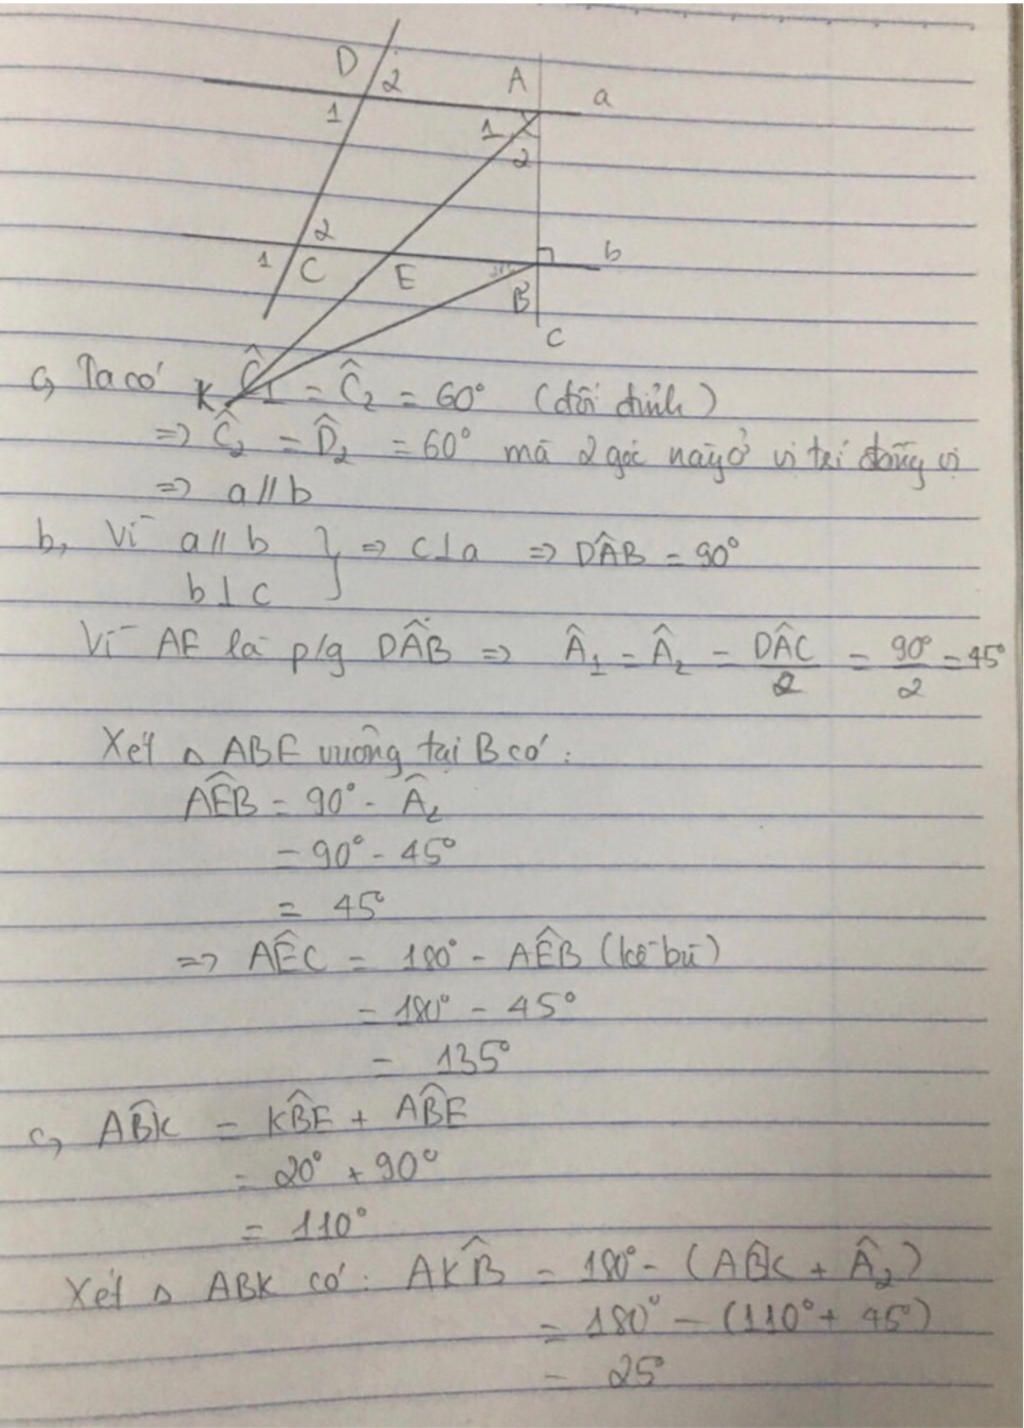 D 2 A a
1 1
2
2
1 C E b
B
C
a, Ta có K Ĉ₁ = Ĉ₂ = 60° (đối đỉnh)
=> Ĉ₂ = D̂₂ = 60° mà 2 góc này ở vị trí đồng vị
=> a // b
b, Vì a // b } => c ⊥ a => DÂB = 90°
b ⊥ c
Vì AE là p/g DÂB => Â₁ = Â₂ = DÂC/2 = 90°/2 = 45°
Xét △ ABE vuông tại B có:
AÊB = 90° - Â₂
= 90° - 45°
= 45°
=> AÊC = 180° - AÊB (kề bù)
= 180° - 45°
= 135°
c, AB̂K = KB̂E + AB̂E
= 20° + 90°
= 110°
Xét △ ABK có: AK̂B = 180° - (AB̂K + Â₂)
= 180° - (110° + 45°)
= 25°